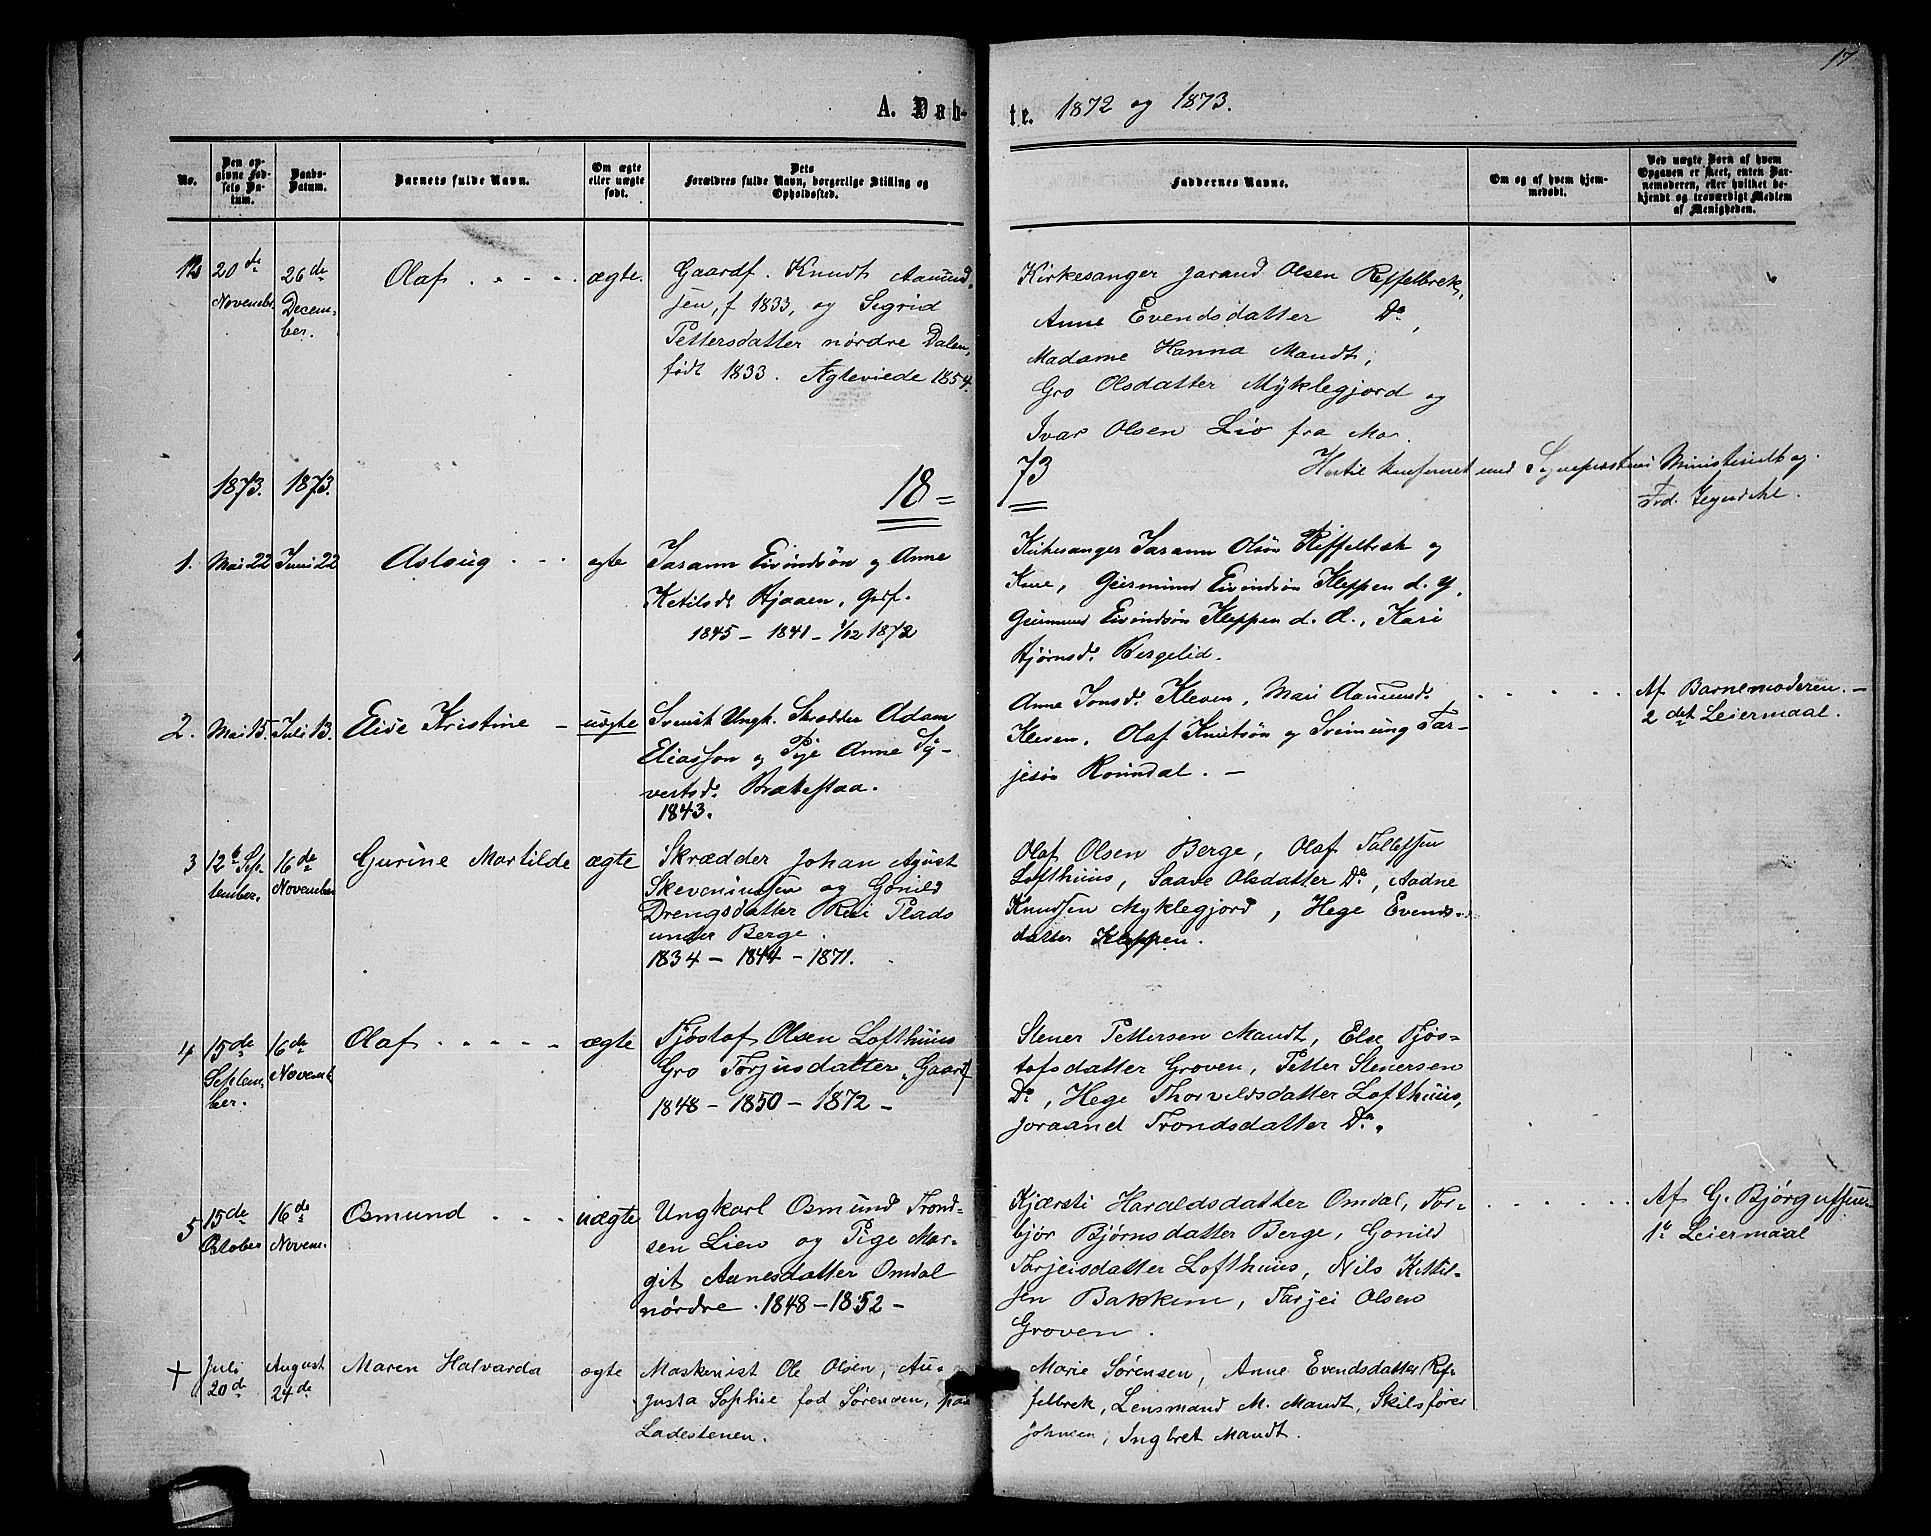 17
A. Døb-
te. 1872 og 1873.
No.
Den op-
givne Fød-
sels Da-
tum.
Daabs-
Datum.
Barnets fulde Navn.
Om ægte
eller uægte
født.
Dets
Forældres fulde Navn, borgerlige Stilling og
Opholdssted.
Faddernes Navne.
Om og af hvem hjem-
medøbt.
Ved uægte Børn af hvem
Opgaven er skeet, enten Bar-
nemoderen, eller hvilket be-
kjendt og troværdigt Medlem
af Menigheden.
12
20de
Novembr.
26de
Decem-
ber.
Olaf
ægte.
Gaardf. Knudt Aamund-
sen, f 1833, og Sigrid
Pettersdatter nørdre Dalen,
født 1833. Ægteviede 1854.
Kirkesanger Jarand Olsen Riffelbrek,
Anne Evendsdatter Do,
Madame Hanna Mandt,
Gro Olsdatter Myklegjord og
Ivar Olsen Lio fra Mo.
1873. 1873.
18=
73
Hertil konfereret med Sognepræstens Ministerialbog.
Frd.
1.
Mai 22
Juni 22
Aslaug
ægte
Jarann Eivindsøn og Anne
Ketilsdr Hjaaen, Grdf.
1845 – 1841 – 1/12 1872
Kirkesanger Jarann Olsøn Riffelbræk og
Kone, Geirmund Eivindsøn Kleppen d. y.
Geirmund Eivindsøn Kleppen d. Æ., Kari
Bjørnsd. Bergelid.
2.
Mai 15.
Juli 13.
Elise Kristine
uægte
Svensk Ungk. Skrædder Adam
Eliasson og Pige Anne Sy-
vertsd. Brakestaa.
1843.
Anne Jonsd. Kleven, Mari Aamunds.
Kleven, Olaf Knutsøn og Sveinung Tar-
jesøn Roindal. –
Af Barnemoderen. –
2det Leiermaal.
3
12te Sep-
tember.
16de
November
Gurine Martilde
ægte
Skrædder Johan August
Skeveniussen og Gonild
Drengsdatter Rui Plads
under Berge.
1834 – 1844 – 1871.
Olaf Olsen Berge, Olaf Tallefsen
Lofthuus, Saave Olsdatter Do, Aadne
Knudsen Myklegjord, Hege Evends-
datter Kleppen.
4
15de
Septem-
ber.
16de
Novemb.
Olaf
ægte
Tjøstof Olsen Lofthuus
Gro Torjusdatter, Gaardf
1848 – 1850 – 1872 –
Stener Pettersen Mandt, Else Tjøs-
tofsdatter Groven, Petter Stenersen
Do, Hege Thorvildsdatter Lofthuus,
Joraand Trondsdatter Do.
5
15de
October
16de
Novem.
Osmund
uægte
Ungkarl Osmund Trond-
sen Lien og Pige Mar-
git Aanesdatter Omdal
nørdre. 1848 – 1852 –
Kjærsti Haraldsdatter Omdal, Tor-
bjør Bjørnsdatter Berge, Gonild
Tarjeisdatter Lofthuus, Nils Kittil-
sen Bakken, Tarjei Olsen
Groven.
Af G. Bjørgufsen
1te Leiermaal
+
Juli
20d
August
24de
Maren Halvarda
ægte
Maskenist Ole Olsen, Au-
gusta Sophie fød Sørensen, paa
Ladestenen.
Marie Sørensen, Anne Evendsdatter Rif-
felbrek, Lensmand M. Mandt, Skibsfører
Johnsen, Ingbret Mandt.